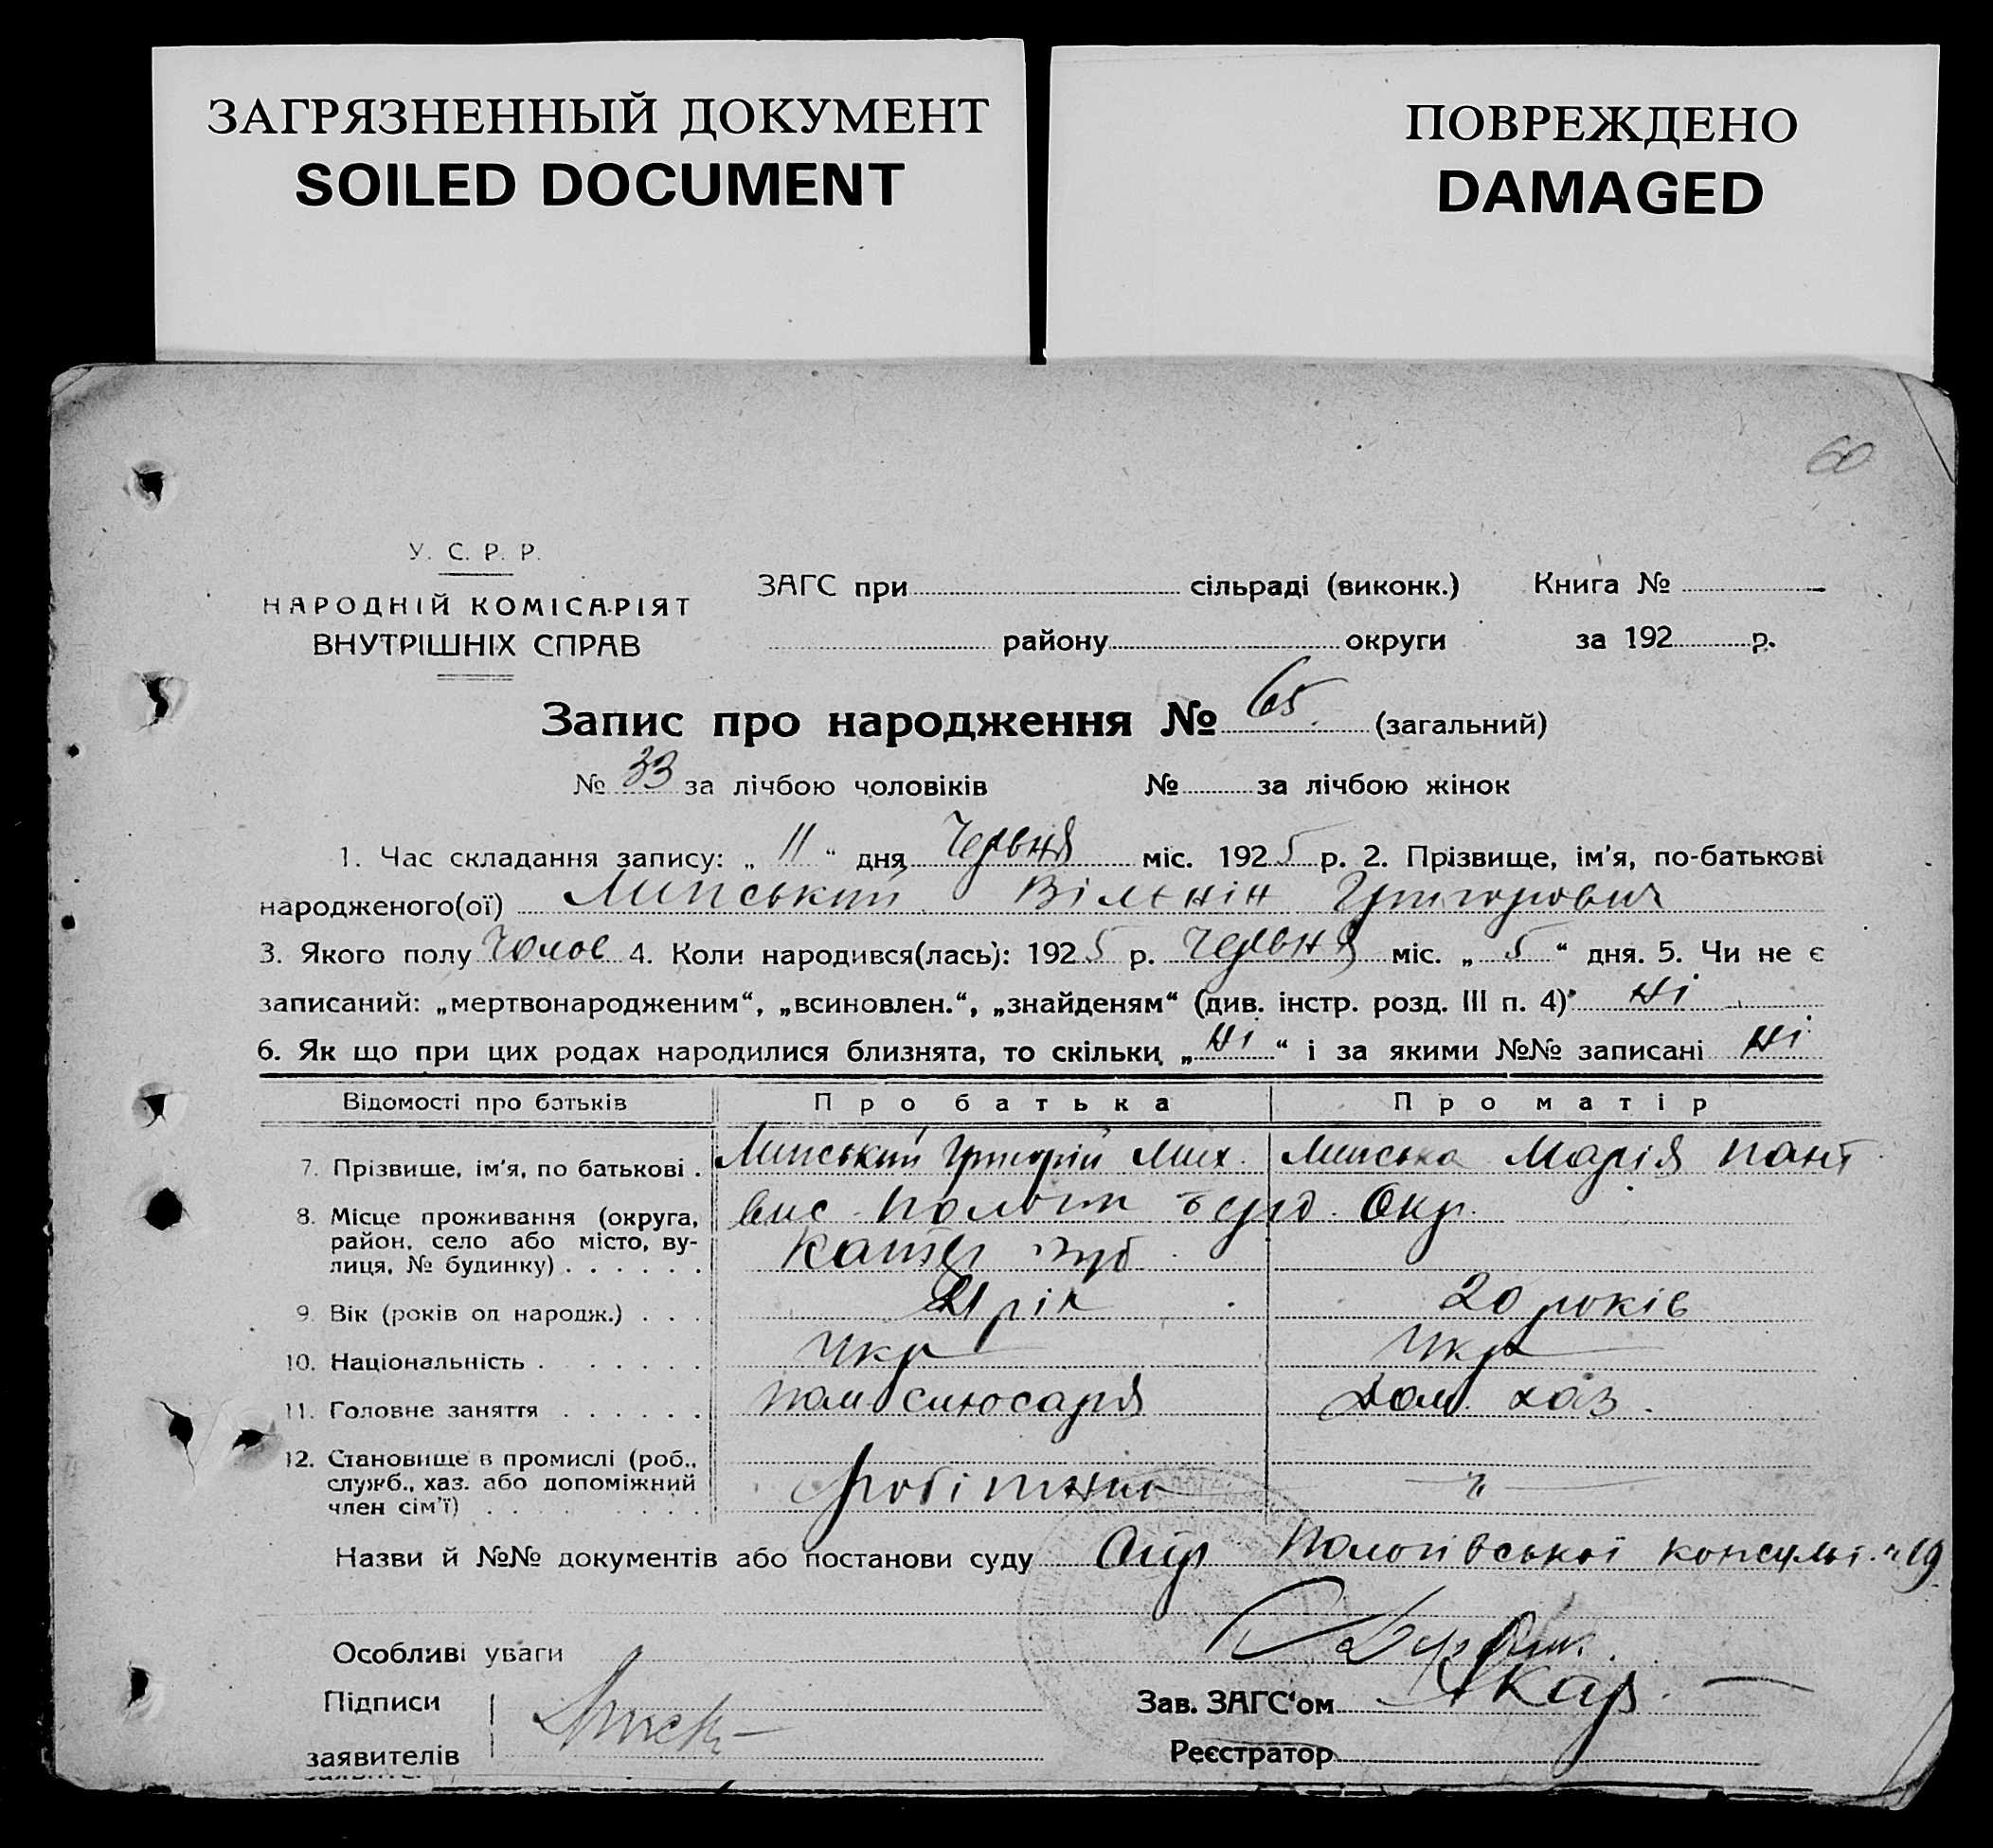 ЗАГРЯЗНЕННЫЙ ДОКУМЕНТ
SOILED DOCUMENT
ПОВРЕЖДЕНО
DAMAGED
60
У. С. Р. Р.
НАРОДНІЙ КОМІСАРІЯТ
ВНУТРІШНІХ СПРАВ
ЗАГС при сільраді (виконк.) Книга №
району округи за 192 р.
Запис про народження № 65. (загальний)
№ 33 за лічбою чоловіків № за лічбою жінок
1. Час складання запису: „ 11 “ дня Червня міс. 1925 р. 2. Прізвище, ім'я, по-батькові
народженого(ої) Липський Віленін Григорович
3. Якого полу Чолов 4. Коли народився(лась): 1925 р. Червня міс. „ 5 “ дня. 5. Чи не є
записаний: „мертвонародженим“, „всиновлен.“, „знайденям“ (див. інстр. розд. III п. 4) Ні
6. Як що при цих родах народилися близнята, то скільки „ Ні “ і за якими №№ записані Ні
Відомості про батьків Про батька Про матір
7. Прізвище, ім'я, по батькові . Липський Григорій Мих. Липська Марія Пант
8. Місце проживання (округа, район, село або місто, вулиця, № будинку) . . . . . . вис. Пологи Берд. Окр.
Катер губ.
9. Вік (років од народж.) . . . 21 рік 20 років
10. Національність . . . . . . . Укр Укр
11. Головне заняття . . . . . . пом слюсаря Дом. хаз.
12. Становище в промислі (роб., служб., хаз. або допоміжний член сім'ї) . . . . . . . . . робітник "
Назви й №№ документів або постанови суду Пологівської консульт. 19
Особливі уваги
Підписи
заявителів
Зав. ЗАГС'ом
Реєстратор